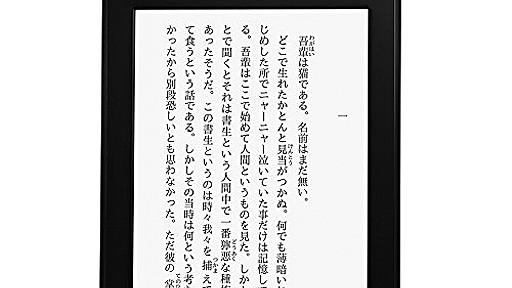 一
吾輩は猫である。名前はまだ無い。
どこで生れたかとんと見当がつかぬ。何でも薄暗い
じめした所でニャーニャー泣いていた事だけは記憶し
る。吾輩はここで始めて人間というものを見た。しか
とで聞くとそれは書生という人間中で一番獰悪な種
あったそうだ。この書生というのは時々我々を捕え
て食うという話である。しかしその当時は何という考
かったから別段恐しいとも思わなかった。ただ彼の掌